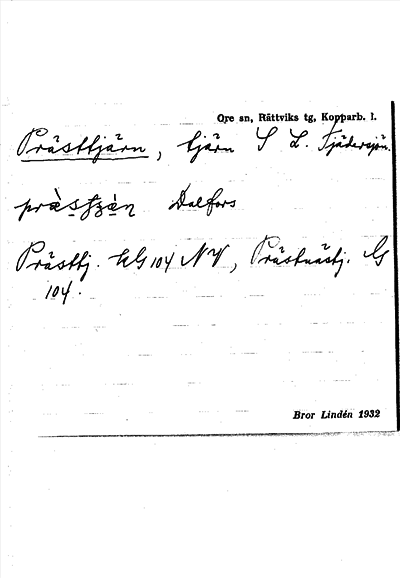 Ore sn, Rättviks tg, Kopparb. l.
Prästtjärn, tjärn S L. Fjädersjön.
Dalfors
Prästtj. EG 104 NV, Prästnästj. G
104.
Bror Lindén 1932